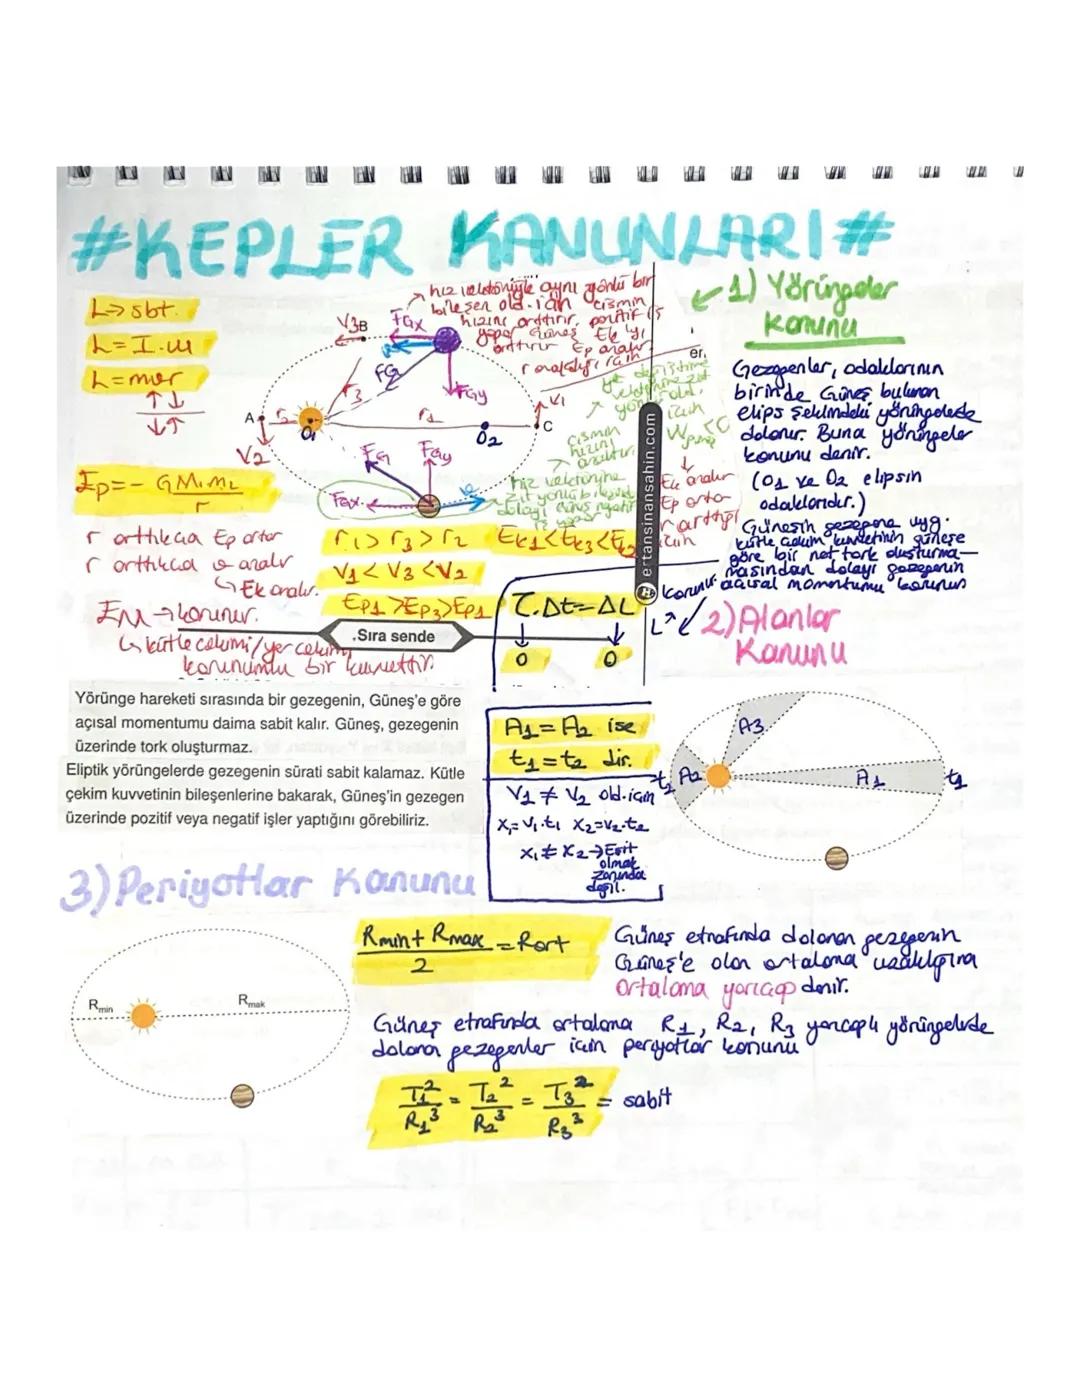 #KEPLER KANUNLARI#
L→sbt.
L=I.ω
L=mvr
Ep=-GM₁M₂/r
r arttıkça Ep artar
r arttıkça υ azalır
↳Ek azalır.
EM→korunur.
↳kütle çekimi/yer çekimi
korunumlu bir kuvvettir.
hız vektörüyle aynı yönlü bir
bileşen old. için cismin
hızını arttırır, pozitif iş
yapar Güneş Ek'yı
arttırır Ep azalır
r azaldığı için
V3 B
FGx
FG
FGy
r3
A r2
r1
V1
C
O1
O2
V2
FG FGy
FGx
υ
cismin
hızını
azaltır.
hız vektörüne
zıt yönlü bileşenden
dolayı güneş negatif
iş yapar
Wgüneş<0
Ek azalır
Ep artar
r arttığı
için
r1>r3>r2
V1<V3<V2
EP1>EP3>EP1
Ek1<Ek3<Ek2
.Sıra sende
τ.Δt=ΔL
0 0
ertansinansahin.com
er.
1) Yörüngeler
Kanunu
Gezegenler, odaklarının
birinde Güneş bulunan
elips şeklindeki yörüngelerde
dolanır. Buna yörüngeler
kanunu denir.
(O1 ve O2 elipsin
odaklarıdır.)
Güneşin gezegene uyg.
kütle çekim kuvvetinin güneşe
göre bir net tork oluşturma-
masından dolayı gezegenin
açısal momentumu korunur
L korunur
2) Alanlar
Kanunu
Yörünge hareketi sırasında bir gezegenin, Güneş'e göre
açısal momentumu daima sabit kalır. Güneş, gezegenin
üzerinde tork oluşturmaz.
Eliptik yörüngelerde gezegenin sürati sabit kalamaz. Kütle
çekim kuvvetinin bileşenlerine bakarak, Güneş'in gezegen
üzerinde pozitif veya negatif işler yaptığını görebiliriz.
A1=A2 ise
t1=t2 dir.
V1≠V2 old.için
X1=V1.t1 X2=V2.t2
X1≠X2→Eşit
olmak
zorunda
değil.
A3
t2 A2 A1 t1
3) Periyotlar Kanunu
Rmin
Rmak
Rmin+Rmax/2=Rort
Güneş etrafında dolanan gezegenin
Güneş'e olan ortalama uzaklığına
ortalama yarıçap denir.
Güneş etrafında ortalama R1, R2, R3 yarıçaplı yörüngelerde
dolanan gezegenler için periyotlar kanunu
T1²/R1³=T2²/R2³=T3²/R3³=sabit